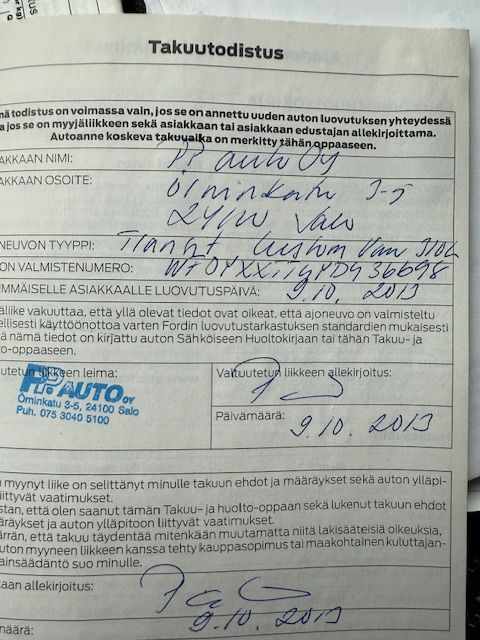 Takuutodistus
mä todistus on voimassa vain, jos se on annettu uuden auton luovutuksen yhteydessä
a jos se on myyjäliikkeen sekä asiakkaan tai asiakkaan edustajan allekirjoittama.
Autoanne koskeva takuuaika on merkitty tähän oppaaseen.
AKKAAN NIMI: P.P. auto Oy
AKKAAN OSOITE: Örninkatu 3-5
24100 Salo
NEUVON TYYPPI: Custom Van 310L
ON VALMISTENUMERO:
IMMÄISELLE ASIAKKAALLE LUOVUTUSPÄIVÄ: 9.10. 2013
äliike vakuuttaa, että yllä olevat tiedot ovat oikeat, että ajoneuvo on valmisteltu
ellisesti käyttöönottoa varten Fordin luovutustarkastuksen standardien mukaisesti
ä nämä tiedot on kirjattu auton Sähköiseen Huoltokirjaan tai tähän Takuu- ja
to-oppaaseen.
utetun liikkeen leima:
PP. AUTO OY
Örninkatu 3-5, 24100 Salo
Puh. 075 3040 5100
Valtuutetun liikkeen allekirjoitus:
Päivämäärä: 9.10. 2013
myynyt liike on selittänyt minulle takuun ehdot ja määräykset sekä auton ylläpi-
iittyvät vaatimukset.
stan, että olen saanut tämän Takuu- ja huolto-oppaan sekä lukenut takuun ehdot
ääräykset ja auton ylläpitoon liittyvät vaatimukset.
ärrän, että takuu täydentää mitenkään muuttamatta niitä lakisääteisiä oikeuksia,
uton myyneen liikkeen kanssa tehty kauppasopimus tai maakohtainen kuluttajan-
ainsäädäntö suo minulle.
kaan allekirjoitus:
märä: 9.10. 2013